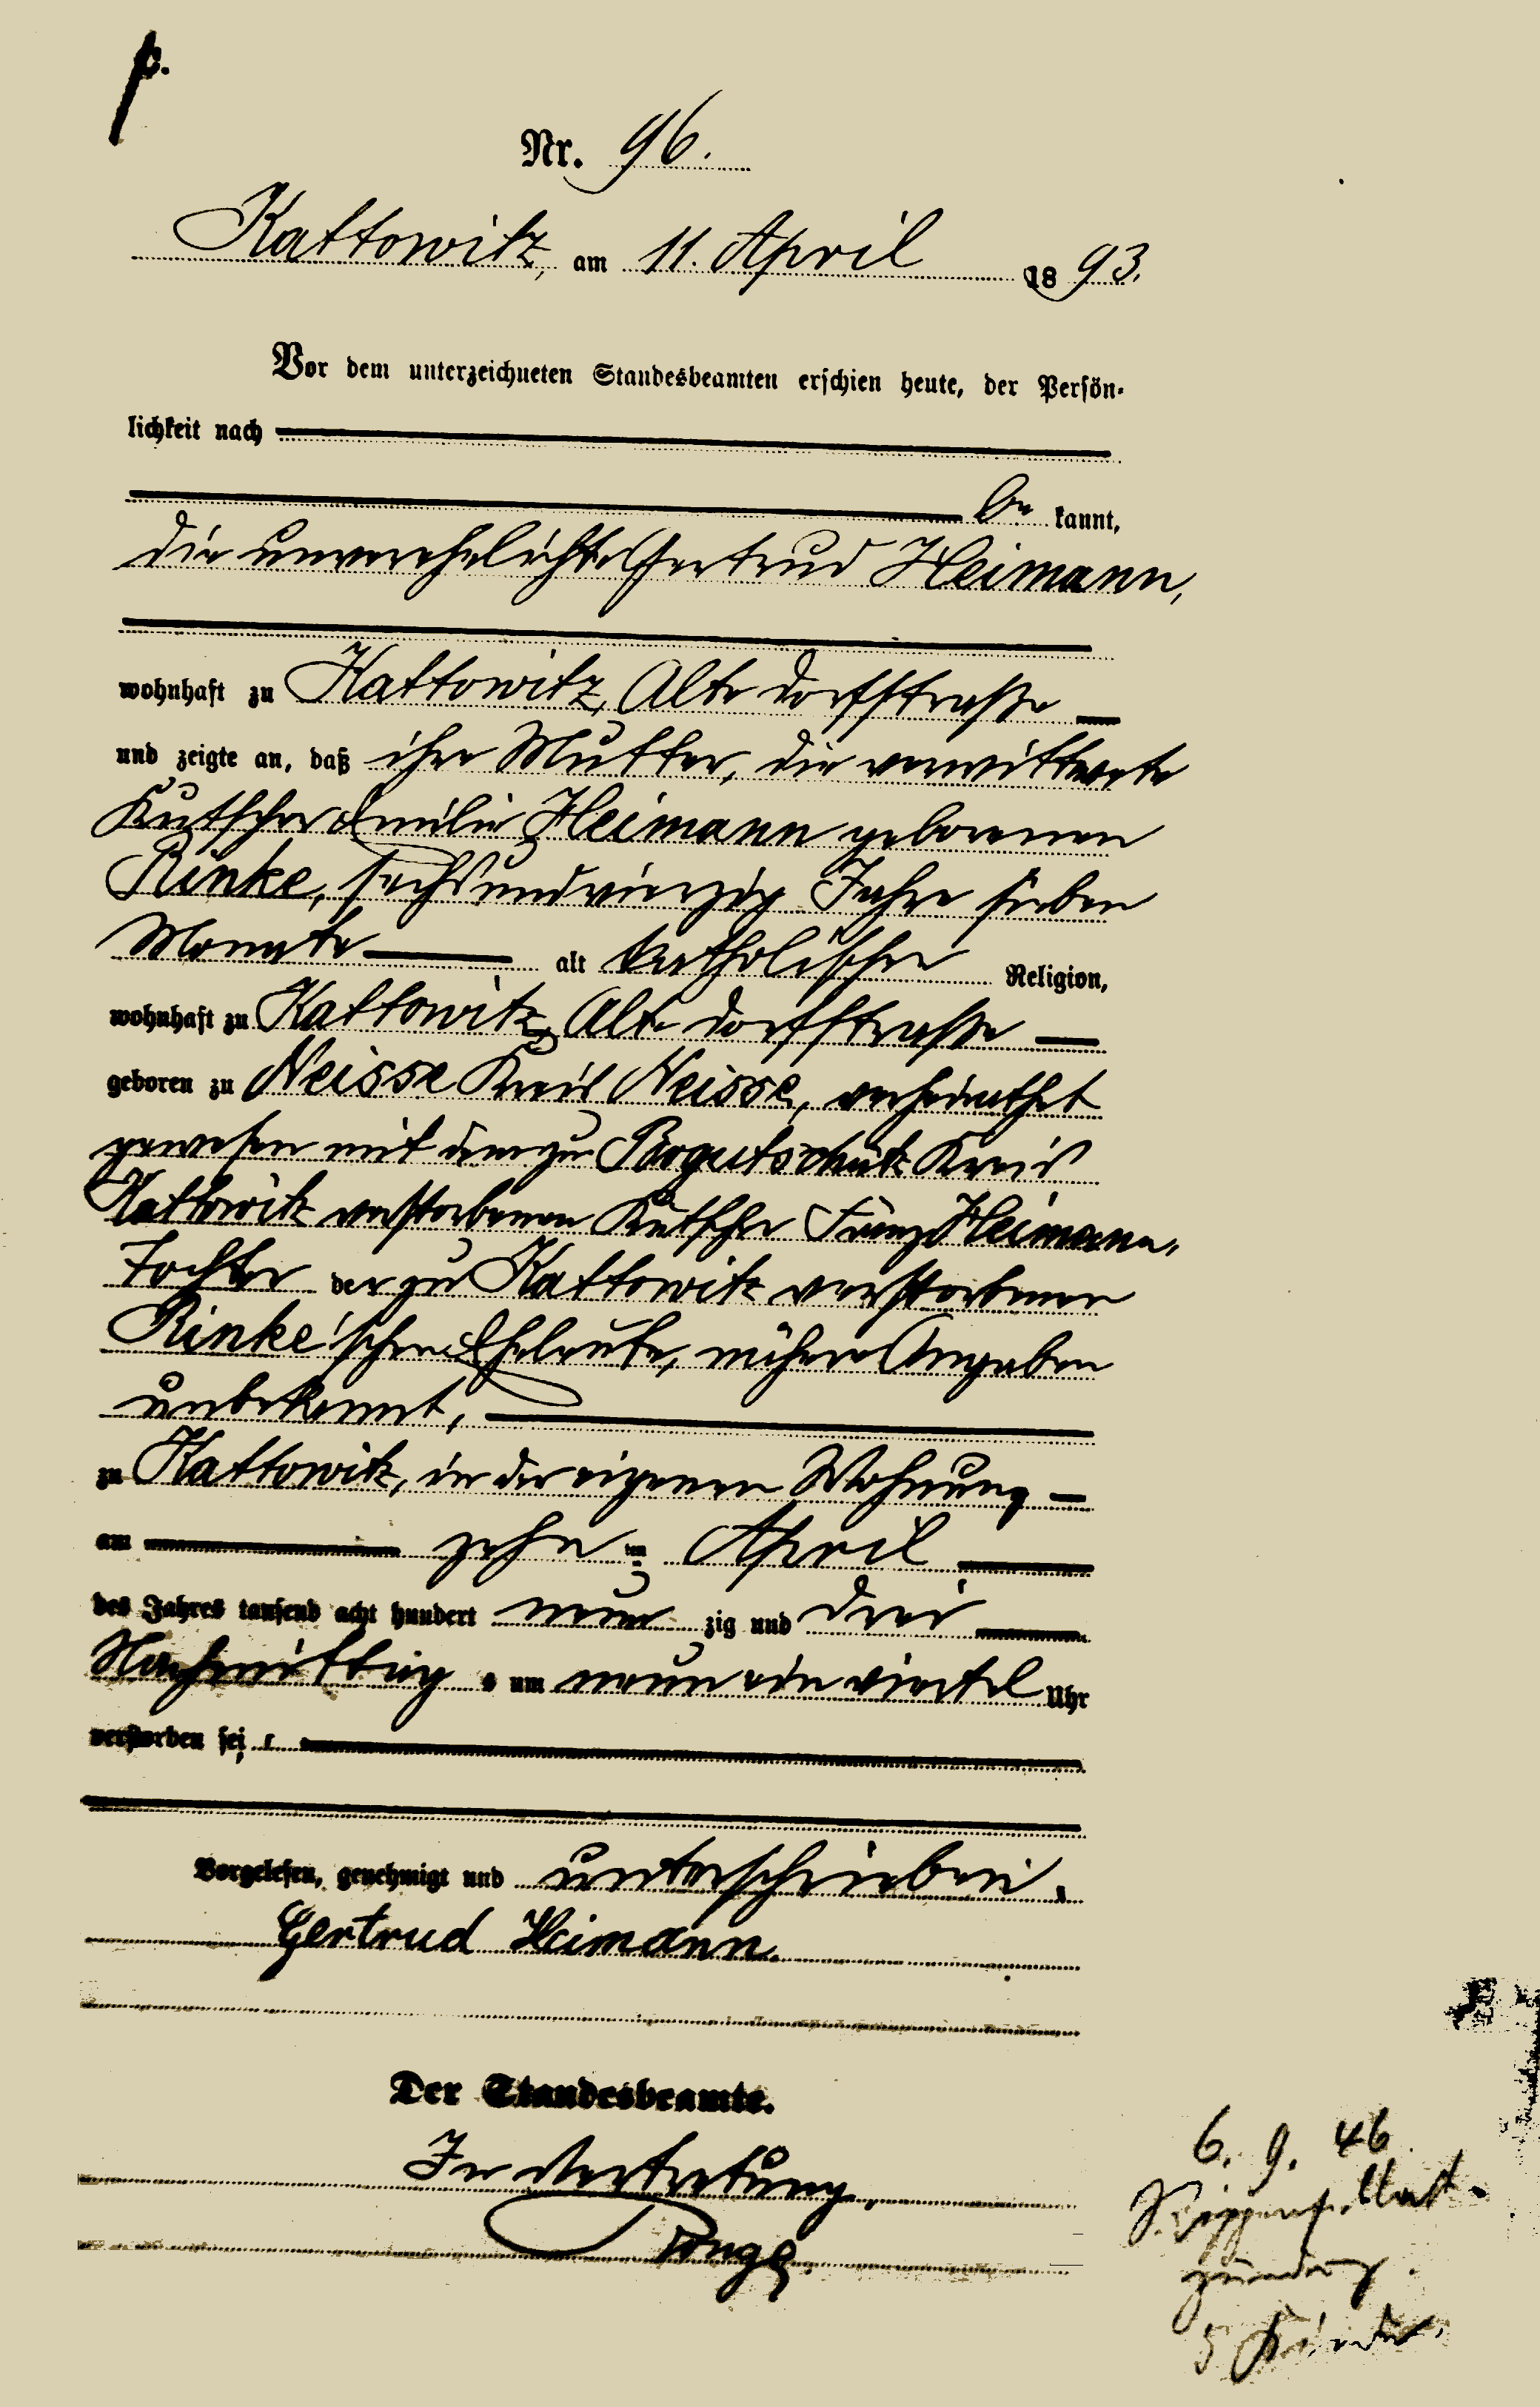 p.
Nr. 96.
Kattowitz, am 11. April 1893.
Vor dem unterzeichneten Standesbeamten erschien heute, der Persön-
lichkeit nach
be kannt,
die unverehelichte Gertrud Heimann,
wohnhaft zu Kattowitz, Alte Dorfstraße
und zeigte an, daß ihre Mutter, die verwittwete
Kutscher Emilie Heimann geborenen
Rinke, sechsundvierzig Jahre sieben
Monate alt katholischer Religion,
wohnhaft zu Kattowitz, Alte Dorfstraße
geboren zu Neisse Kreis Neisse, verheirathet
gewesen mit dem zu Bogutschütz Kreis
Kattowitz verstorbenen Kutscher Franz Heimann,
Tochter der zu Kattowitz verstorbenen
Rinke'schen Eheleute, nähere Angaben
unbekannt,
zu Kattowitz, in der eigenen Wohnung
am zehn ten April
des Jahres tausend acht hundert neun zig und drei
Nachmittag s um neun ein viertel Uhr
verstorben sei
Vorgelesen, genehmigt und unterschrieben.
Gertrud Heimann.
Der Standesbeamte.
In Vertretung.
6. 9. 46
5 Kinder.